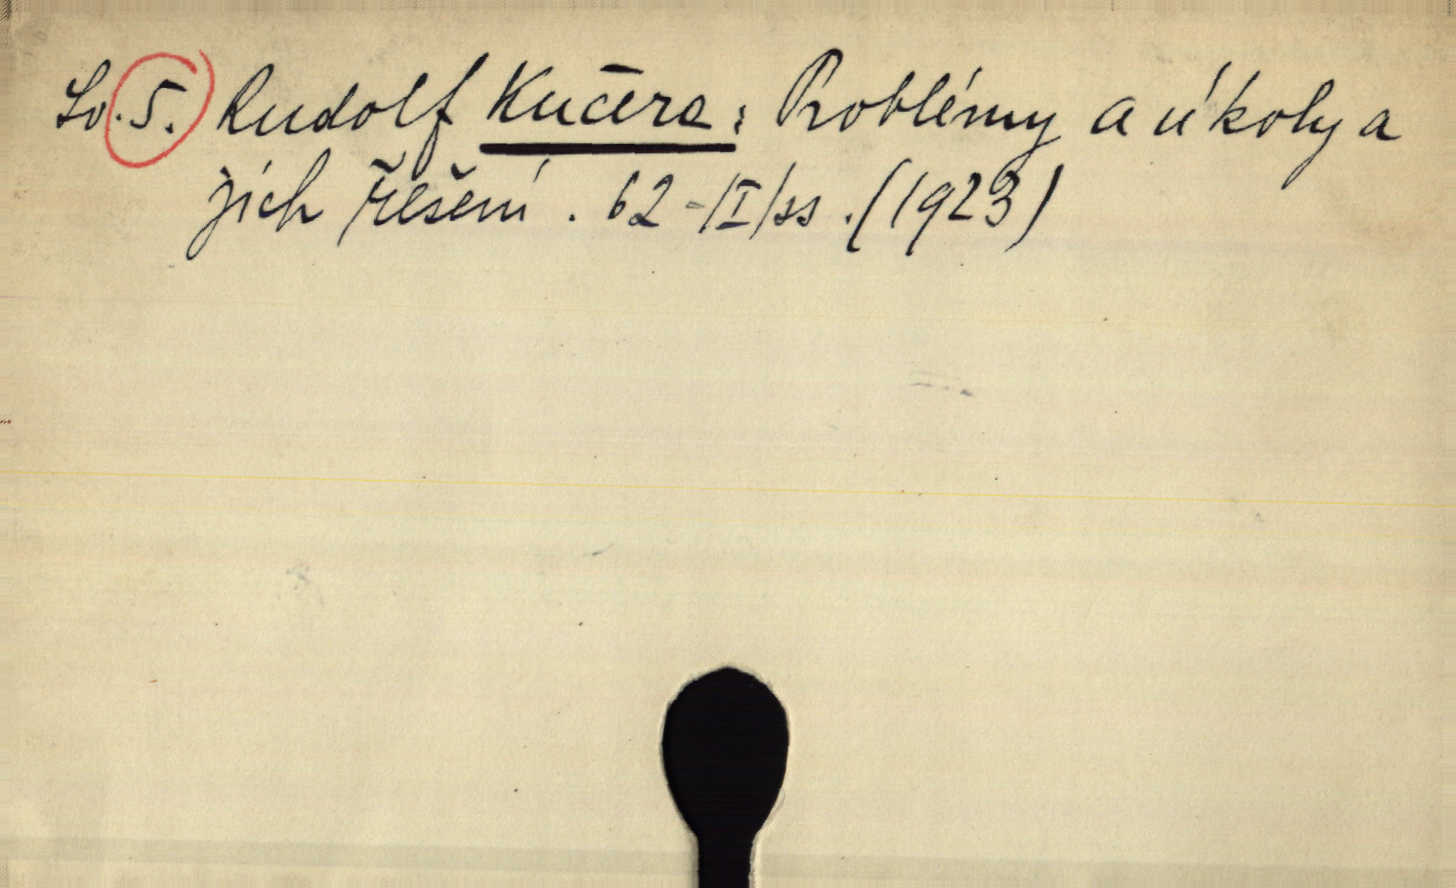 Sv. 5. Rudolf Kučera: Problémy a úkoly a
jich řešení. 62-/I/ss. (1923)